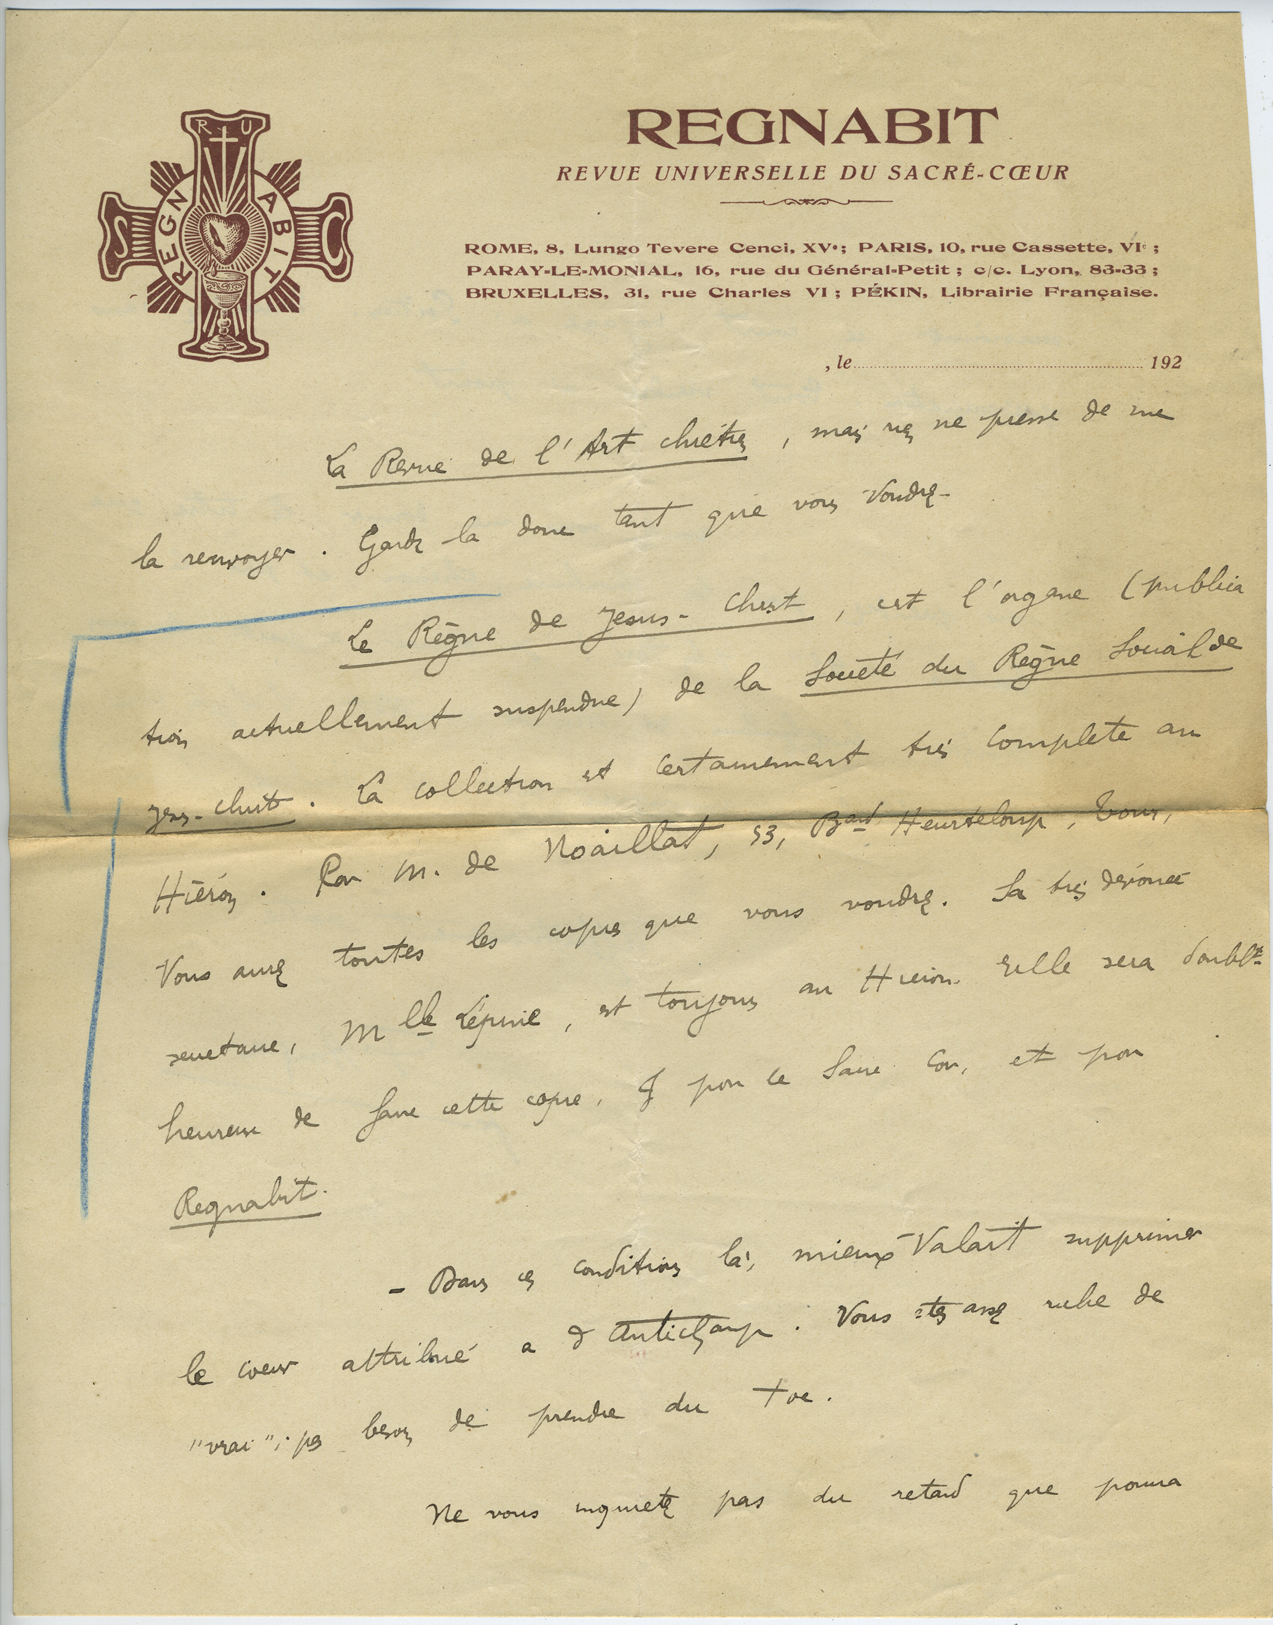 R U
S REGNABIT C
REGNABIT
REVUE UNIVERSELLE DU SACRÉ-CŒUR
ROME, 8, Lungo Tevere Cenci, XVe; PARIS, 10, rue Cassette, VIe;
PARAY-LE-MONIAL, 16, rue du Général-Petit; c/c. Lyon, 83-33;
BRUXELLES, 31, rue Charles VI; PÉKIN, Librairie Française.
, le 192
La Revue de l'Art chrétien, mais rien ne presse de me
la renvoyer. Gardez la donc tant que vous voudrez-
Le Règne de Jesus-Christ, est l'organe (publica
tion actuellement suspendue) de la Société du Règne Social de
Jesus-Christ. La collection est certainement très complète au
Hiéron. Par M. de Noaillat, 53, Bard Heurteloup, Tours,
Vous aurez toutes les copies que vous voudrez. Sa très dévouée
secretaire, Mlle Lépine, est toujours au Hieron. Elle sera doublt
heureuse de faire cette copie, pour le Sacré Cœur, et pour
Regnabit.
- Dans ces conditions là, mieux valait supprimer
le coeur attribué a d'Antichamp. Vous êtes assez riche de
"vrai"; pas besoin de prendre du
Ne vous inquietez pas du retard que pourra